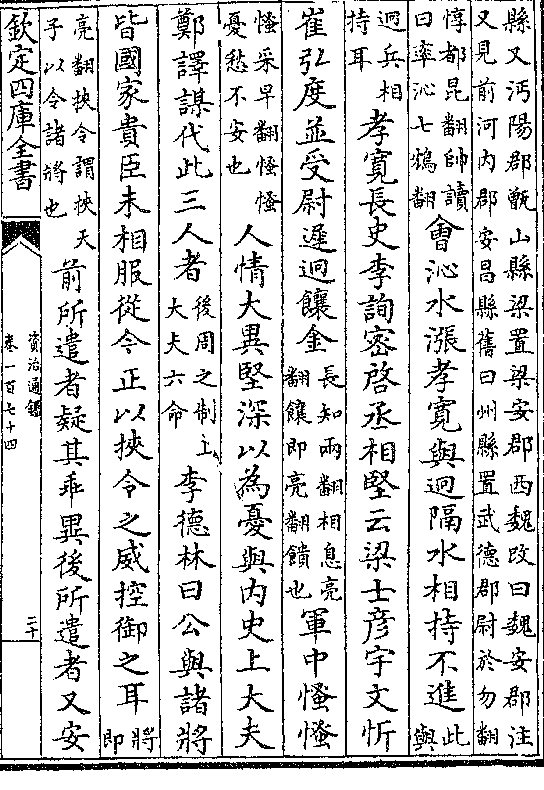 縣又沔陽郡甑山縣梁置梁安郡西魏改曰魏安郡注
又見前河內郡安昌縣舊曰州縣置武德郡尉於勿翻
惇都昆翻帥讀
曰率沁七鴆翻
會沁水漲孝寛與迥隔水相持不進
此
與
迥兵相
持耳
孝寛長史李詢密啓丞相堅云梁士彦宇文忻
崔弘度並受尉遲迥饟金
長知兩翻相息亮
翻饟即亮翻饋也
軍中慅慅
慅采早翻慅慅
憂愁不安也
人情大異堅深以為憂與內史上大夫
鄭譯謀代此三人者
後周之制上
大夫六命
李德林曰公與諸將
皆國家貴臣未相服從今正以挾令之威控御之耳
將
即
亮翻挾令謂挾天
子以令諸將也
前所遣者疑其乖異後所遣者又安
欽定四庫全書
資治通鑑
卷一百七十四
二十